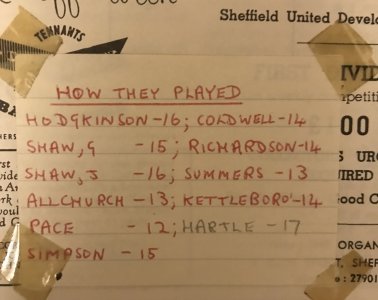 Sheffield United Develo
TENNANTS
HOW THEY PLAYED
HODGKINSON-16; COLDWELL-14
SHAW, G -15; RICHARDSON-14
SHAW, J -16; SUMMERS -13
ALLCHURCH -13; KETTLEBORO'-14
PACE -12; HARTLE -17
SIMPSON -15
00
URG
IRED
ood C
ORGAN
T. SHEF
: 27901